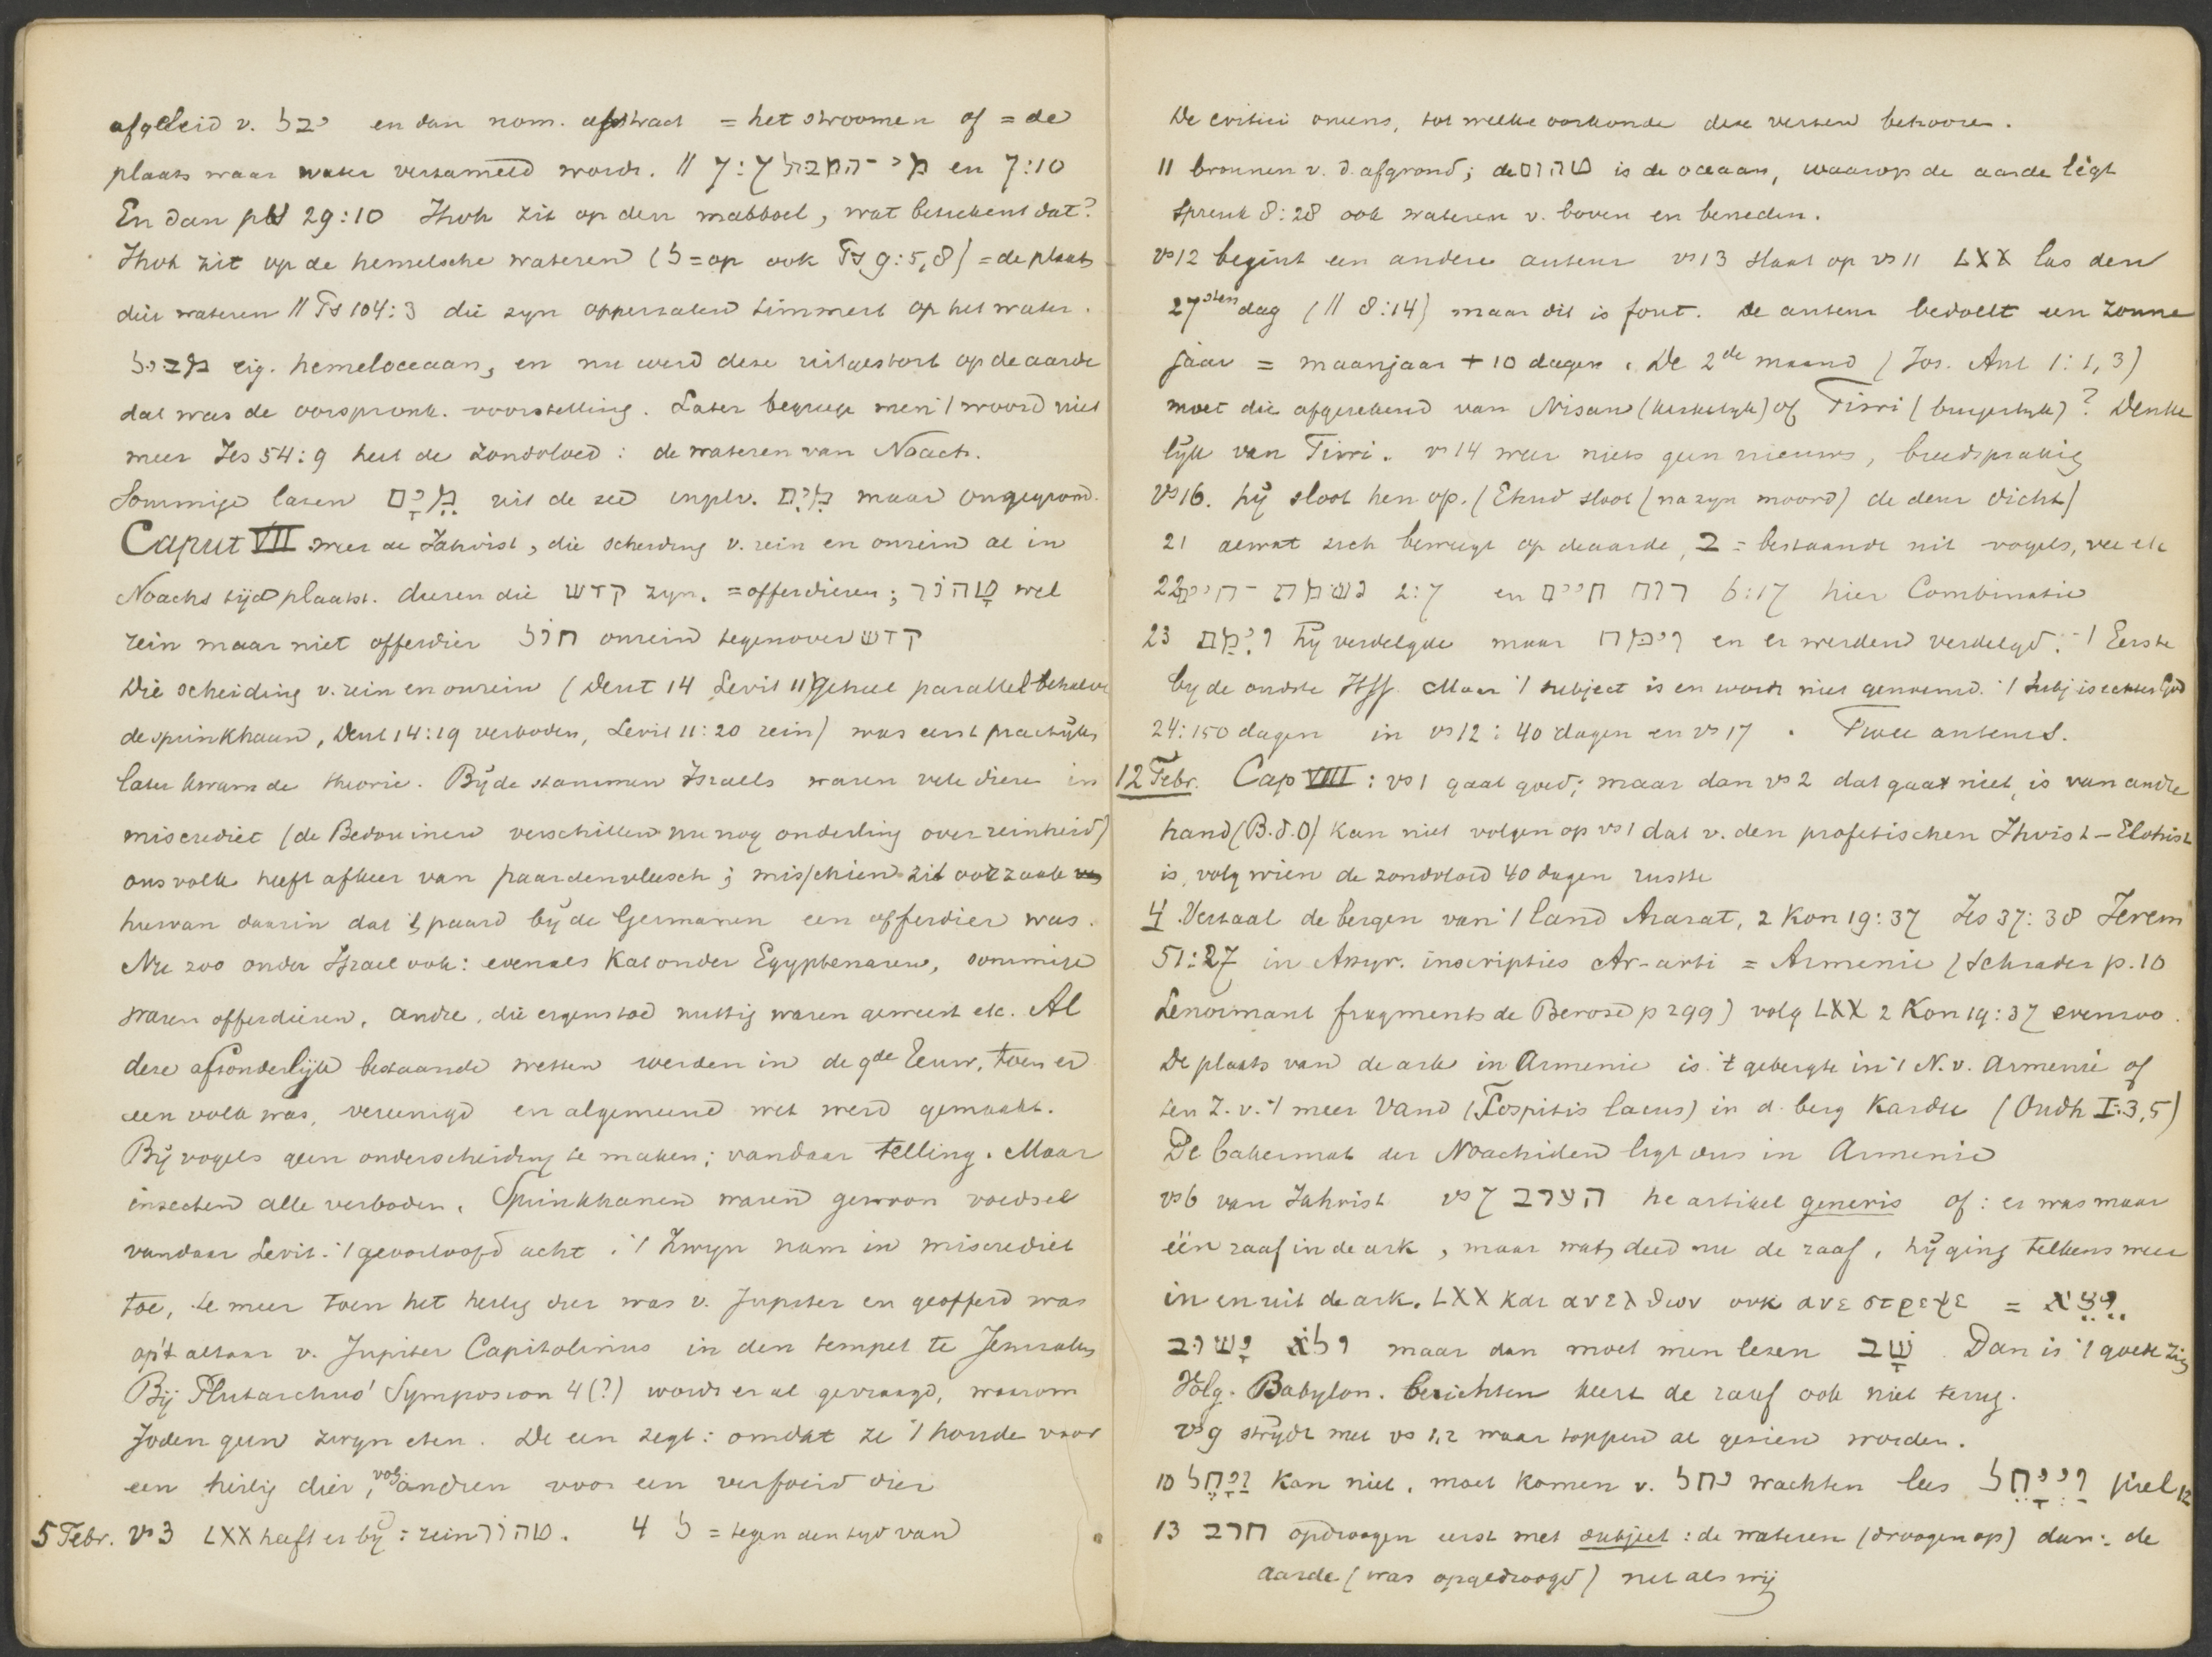 afgeleid v. יבל en dan nom. abstract = het stroomen of = de
plaats waar water verzameld wordt. // 7:7 מי המבול en 7:10
En dan ps 29:10 Jhvh zit op den mabboel, wat beteekent dat?
Jhvh zit op de hemelsche wateren (ל = op ook Ps 9:5,8) = de plaats
dier wateren // Ps 104:3 die zyn opperzalen timmert op het water.
מבול eig. hemeloceaan, en nu werd deze uitgestort op de aarde
dat was de oorspronk. voorstelling. Later begreep men 't woord niet
meer Jes 54:9 heet de zondvloed: de wateren van Noach.
Sommige lazen מִיָּם uit de zee inplv. מַיִם maar ongegrond.
Caput VII weer de Jahvist, die scheiding v. rein en onrein al in
Noachs tijd plaatst. dieren die קדש zyn. = offerdieren; טָהוֹר wel
rein maar niet offerdier חול onrein tegenover קדש
Die scheiding v. rein en onrein (Deut 14 Levit 11) geheel parallel behalve
de sprinkhaan, Deut 14:19 verboden, Levit 11:20 rein) was eerst practijk
later kwam de theorie. Bij de stammen Israels waren vele dieren in
miscrediet (de Bedouinen verschillen nu nog onderling over reinheid)
ons volk heeft afkeer van paardenvleesch; misschien zit oorzaak
hiervan daarin dat 't paard bij de Germanen een offerdier was.
Nu zoo onder Israel ook: evenals Kat onder Egyptenaren, sommige
waren offerdieren, andre, die ergens toe nuttig waren geweest etc. Al
deze afzonderlijk bestaande wetten werden in de 9de Eeuw, toen er
een volk was, vereenigd en algemeene wet werd gemaakt.
Bij vogels geen onderscheiding te maken; vandaar telling. Maar
insecten alle verboden. Sprinkhanen waren gewoon voedsel
vandaar Levit. 't geoorloofd acht. 't Zwyn nam in miscrediet
toe, te meer toen het heilig dier was v. Jupiter en geofferd was
op 't altaar v. Jupiter Capitolinus in den tempel te Jeruzalem
Bij Plutarchus' Symposion 4 (?) wordt er al gevraagd, waarom
Joden geen zwyn eten. De een zegt: omdat ze 't houde voor
een heilig dier, volg. andren voor een verfoeid dier
5 Febr. vs 3 LXX heeft er bij: rein טהור. 4 ל = tegen den tyd van
De critici oneens, tot welke oorkonde deze verzen behooren.
11 bronnen v. d. afgrond; de תהום is de oceaan, waarop de aarde ligt
Spreuk 8:28 ook wateren v. boven en beneden.
vs 12 begint een andere auteur vs 13 slaat op vs 11 LXX las den
27sten dag (// 8:14) maar dit is fout. De auteur bedoelt een zonne
jaar = maanjaar + 10 dagen. De 2de maand (Jos. Ant 1:1,3)
moet die afgerekend van Nisan (kerkelyk) of Tisri (burgerlyk)? Denke
lijk van Tisri. vs 14 weer niets geen nieuws, breedsprakig
vs 16. hij sloot hen op. (Ehud sloot (na zyn moord) de deur dicht)
21 alwat zich beweegt op de aarde, ב = bestaande uit vogels, vee etc
22 נשמת חיים 2:7 en רוח חיים 6:17 hier Combinatie
23 וַיִּמַח hij verdelgde maar וימח en er werden verdelgd. 't Eerste
by de oudste Hss. Maar 't subject is en wordt niet genoemd. 't subj is echter God
24: 150 dagen in vs 12: 40 dagen en vs 17. Twee auteurs.
12 Febr. Cap VIII: vs 1 gaat goed; maar dan vs 2 dat gaat niet, is van andre
hand (B.d.O) kan niet volgen op vs 1 dat v. den profetischen Jhvist - Elohist
is, volg wien de zondvloed 40 dagen rustte
4 Vertaal de bergen van 't land Ararat, 2 Kon 19:37 Jes 37:38 Jerem
51:27 in Assyr. inscripties Ar-arti = Armenie (Schrader p. 10
Lenormant fragments de Berose p 299) volg LXX 2 Kon 19:37 evenzoo.
De plaats van de ark in Armenie is 't gebergte in 't N. v. Armenie of
ten Z. v. 't meer Vand (Tospitis lacus) in d. berg Kardu (Oudh I:3,5)
De bakermat der Noachiden ligt dus in Armenie
vs 6 van Jahvist vs 7 הערב he artikel generis of: er was maar
één raaf in de ark, maar wat deed nu de raaf, hij ging telkens weer
in en uit de ark. LXX και ανελθων ουκ ανεστρεψε = וַיֵּצֵא
ולא ישוב maar dan moet men lezen שָׁב Dan is 't goede zin
Volg. Babylon. berichten keert de raaf ook niet terug.
vs 9 strijdt met vs 1,2 waar toppen al gezien worden.
10 וַיָּחֶל kan niet, moet komen v. יחל wachten lees וַיְיַחֵל piel 12
13 חרב opdroogen eerst met subject: de wateren (droogen op) dan: de
aarde (was opgedroogd) net als wij